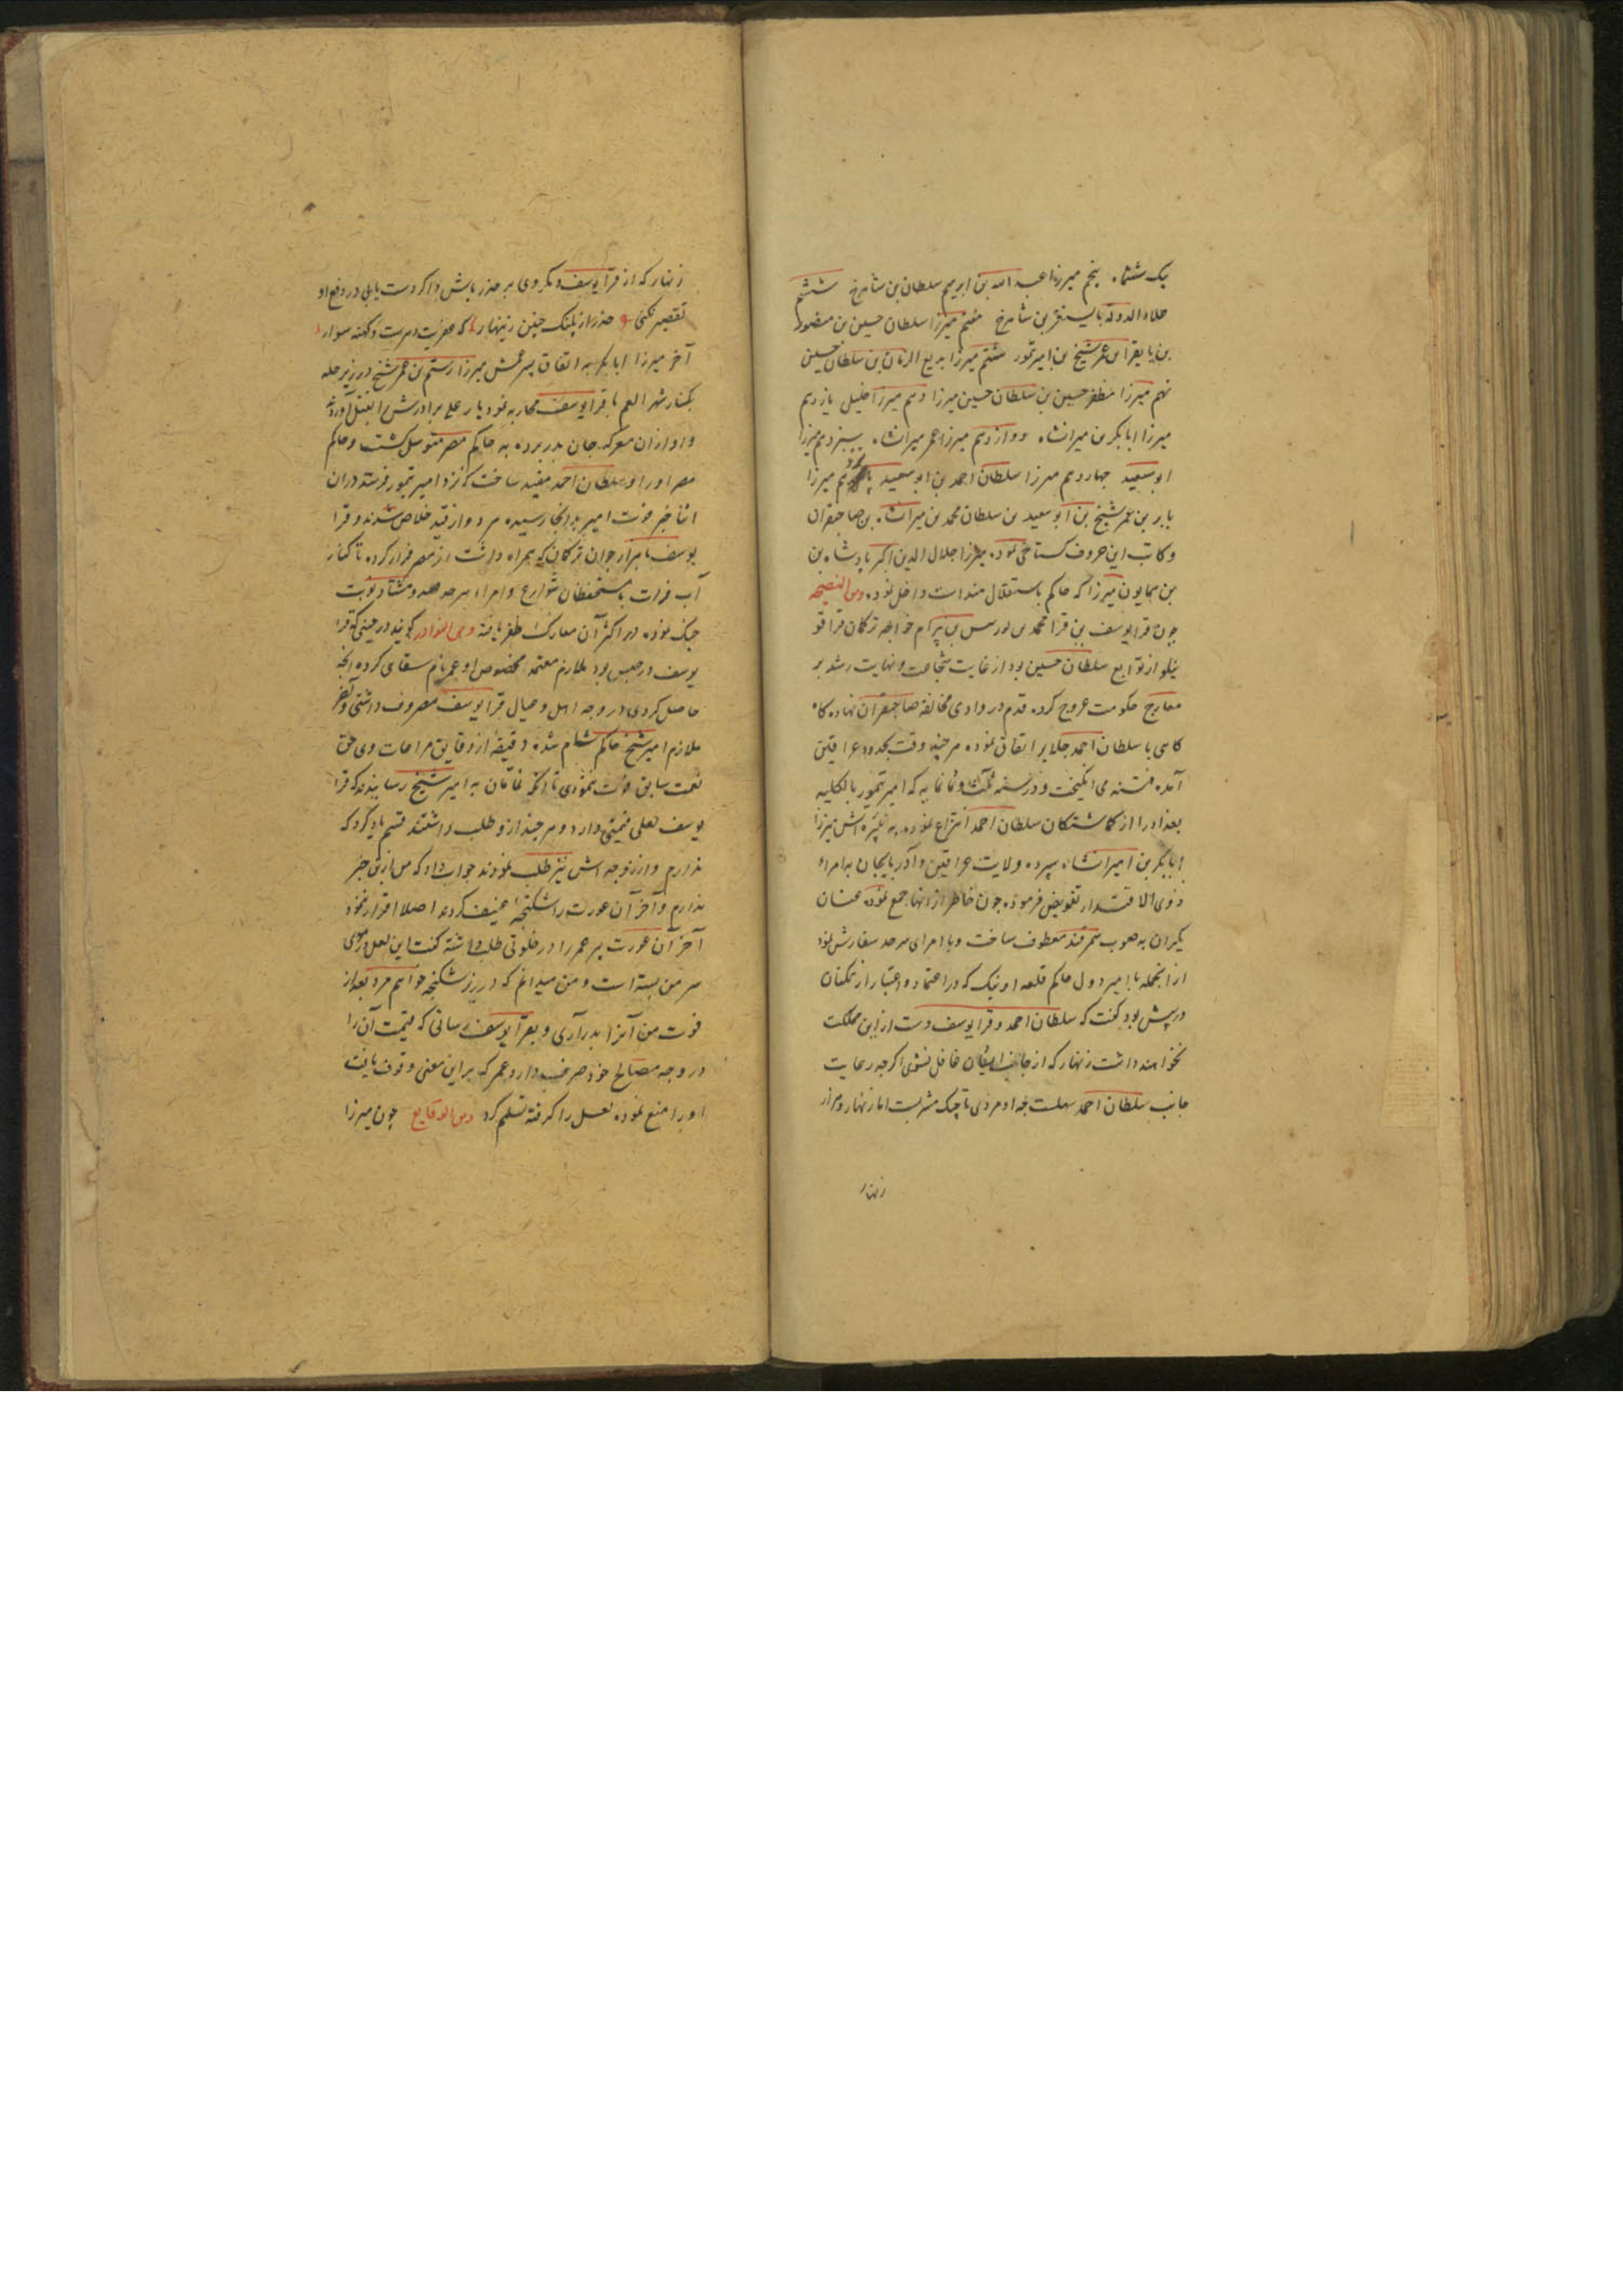 یک ششماه پنجم میرزا عبد الله بن ابرهیم سلطان بن شاهرخ ششم
علاء الدوله بایسنغر بن شاهرخ هفتم میرزا سلطان حسین بن منصور
بن بایقرا بن عمر شیخ بن امیر تمور هشتم میرزا بدیع الزمان بن سلطان حسین
نهم میرزا مظفر حسین بن سلطان حسین میرزا دهم میرزا خلیل یازدهم
میرزا ابابکر بن میرانشاه دوازدهم میرزا عمر میرانشاه سیزدهم میرزا
ابو سعید چهاردهم میرزا سلطان احمد بن ابو سعید میرزا
بابر بن عمر شیخ بن ابو سعید بن سلطان محمد بن میرانشاه بن صاحبقران
و کاتب این حروف کستاخی نموده میرزا جلال الدین اکبر پادشاه بن
بن همایون میرزا که حاکم باستقلال هند است داخل نموده ومن النصیحه
چون قرا یوسف بن قرا محمد بن بن بیرام خواجه ترکمان قرا قو
ینلو از توابع سلطان حسین بود از غایت شجاعت و نهایت رشد بر
معارج حکومت عروج کرده قدم در وادی مخالفه صاحبقران نهاده کاه
کاهی با سلطان احمد جلایر اتفاق نموده هر چند وقت بحدود عراقین
آمده فتنه می انکیخت و در سنه ثلث و ثمانمایه که امیر تیمور بالکلیه
بغداد را از کماشتکان سلطان احمد انتزاع نموده به نبیره اش میرزا
ابابکر بن امیرانشاه سپرده ولایت عراقین و آذربایجان به امراء
ذوی الاقتدار تفویض فرموده چون خاطر از آنها جمع نموده عنان
یکران به صوب سمرقند معطوف ساخت و با امرای سرحد سفارش نمود
از انجمله با امیر دول حاکم قلعه اونیک که در اعتماد و اعتبار از همکنان
در پیش بود گفت که سلطان احمد و قرا یوسف دست از این مملکت
نخواهند داشت زنهار که از جانب ایشان غافل نشوی اکرچه رعایت
جانب سلطان احمد سهلست چه او مردی تاجیک مشربست اما زنهار و هزار
زنهار
زنهار که از قرا یوسف دیکروی بر حذر باش و اکر دست یابی در دفع او
تقصیر نکنی حذر از پلنک چنین زینهار که
آخر میرزا ابابکر به اتفاق پسر عمش میرزا رستم بن عمر شیخ در زیر حله
بکنار نهر الغم با قرا یوسف محاربه نمود یار علی برادرش را بقتل آوردند
و او از ان معرکه جان بدر برده به حاکم مصر متوسل کشت و حاکم
مصر او را و سلطان احمد مقید ساخت که نزد امیر تیمور فرستد در ان
اثنا خبر فوت امیر بدانجا رسیده هر دو از قید خلاص شدند و قرا
یوسف با هزار جوان ترکمان که همراه داشت از مصر فرار کرده تا کنار
آب فرات با مستحفظان شوارع و امراء سرحد صد و هشتاد نوبت
جنک نموده در اکثر آن معارک ظفر یافته ومن النوادر کویند در حینی که قرا
یوسف در حبس بود ملازم معتمد مخصوص او عمر نام سقای کرده آنچه
حاصل کردی در وجه اهل و عیال قرا یوسف مصروف داشتی و آخر
ملازم امیر شیخ حاکم شام شده دقیقه از دقایق مراعات وی حق
نعمت سابق فوت ننمودی تا آنکه نمّامان به امیر شیخ رسانیدند که قرا
یوسف لعلی قیمتی دارد و هر چند از و طلب داشتند قسم یاد کرد که
ندارم و از زوجه اش نیز طلب نمودند جواب داد که من ازین خبر
ندارم و آخر آن عورت را شکنجه عنیف کردند اصلا اقرار ننمود
آخر آن عورت پیر عمر را در خلوتی طلب داشته گفت این لعل در موی
سر من بسته است و من میدانم که در زیر شکنجه خواهم مرد بعد از
فوت من آنرا بدر آری و بقرا یوسف رسانی که قیمت آن را
در وجه مصالح خود صرف دارد عمر که بر این معنی وقوف یافت
او را منع نموده لعل را کرفته تسلیم کرد ومن الوقایع چون میرزا